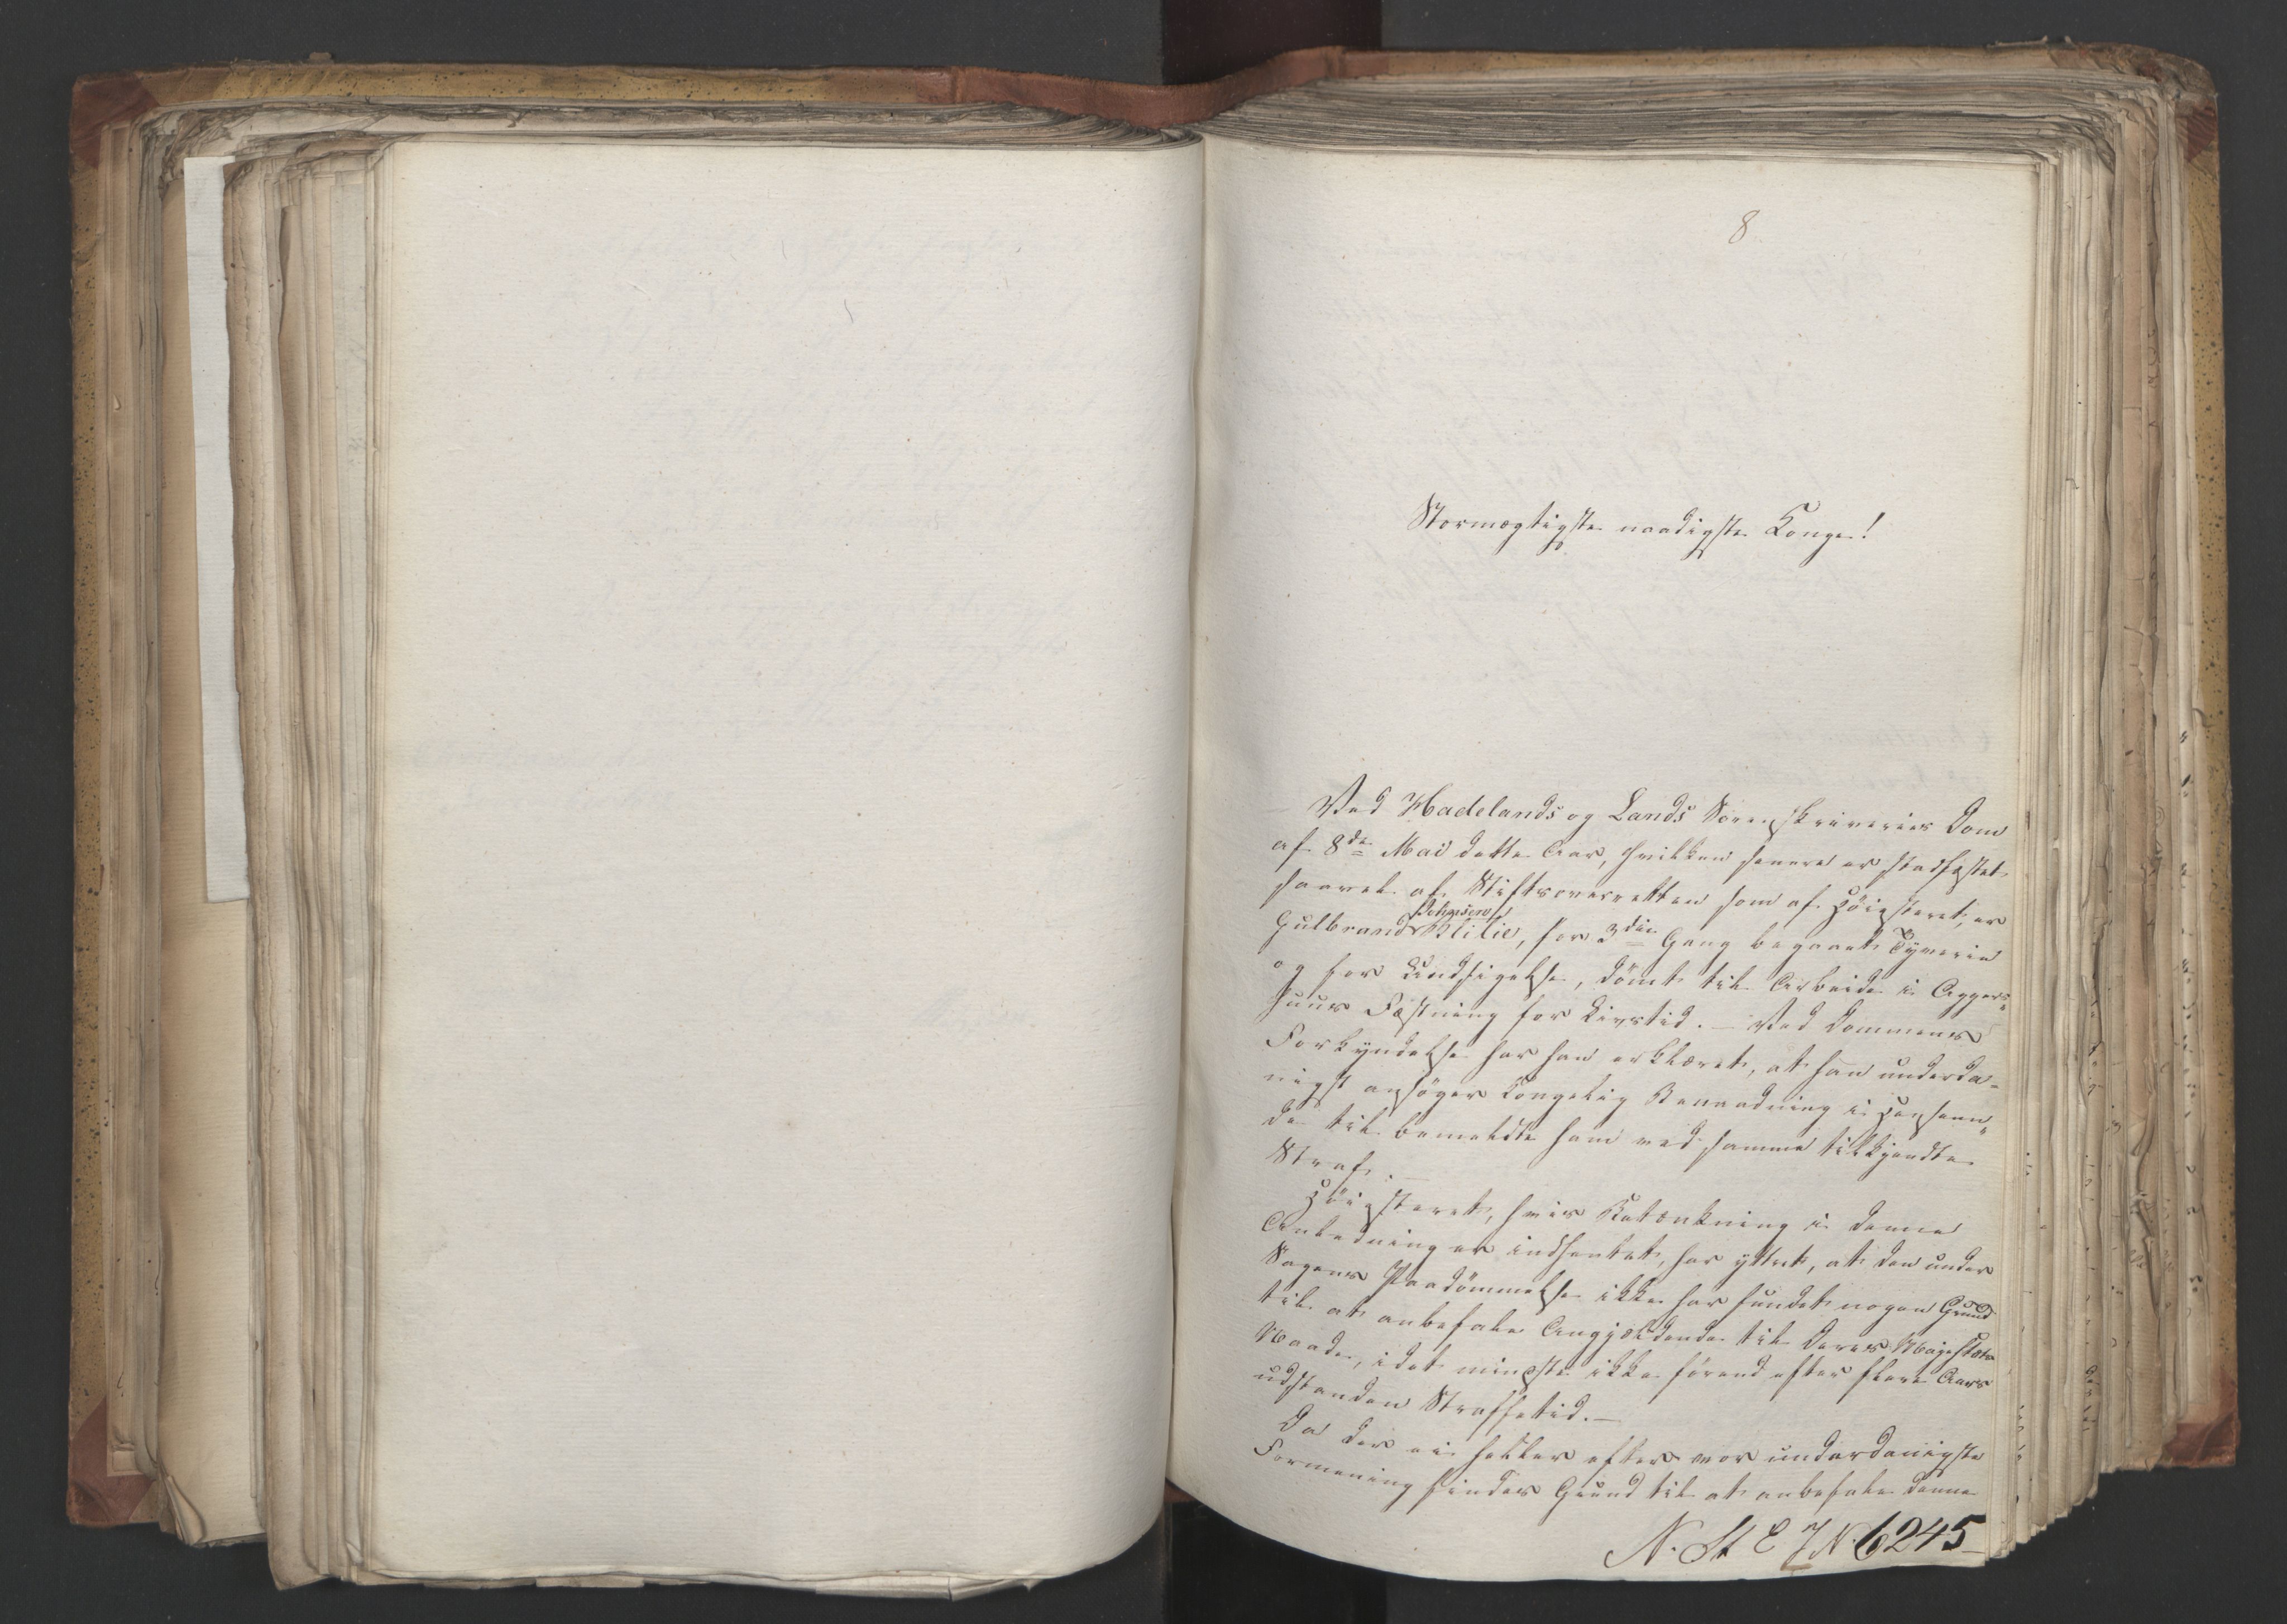 8
Stormægtigste naadigste Konge!
Ved Hadelands og Lands Sorenskriveries Dom
af 8de Mai dette Aar, hvilken senere er stadfæstet
saavel af Stiftsoverretten som af Høiesteret, er
Johnsen
Gulbrand Blilie, for 3die Gang begaaet Tyverie
og for Undsigelse, dømt til Arbeide i Aggers-
huus Fæstning for Livstid. – Ved Dommens
Forkyndelse har han erklæret, at han underda-
nigst ansøger Kongelig Benaadning i Henseen-
de til bemeldte ham ved samme tilkjendte
Straf. –
Høiesteret, hvis Betænkning i denne
Anledning er indhentet, har yttret, at den under
Sagens Paadømmelse ikke har fundet nogen Grund
til at anbefale Angjældende til Deres Majestæts
Naade, idet mindste ikke førend efter flere Aars
udstanden Straffetid. –
Da der ei heller efter vor underdanigste
Formening findes Grund til at anbefale denne
N. St E J N. 6245